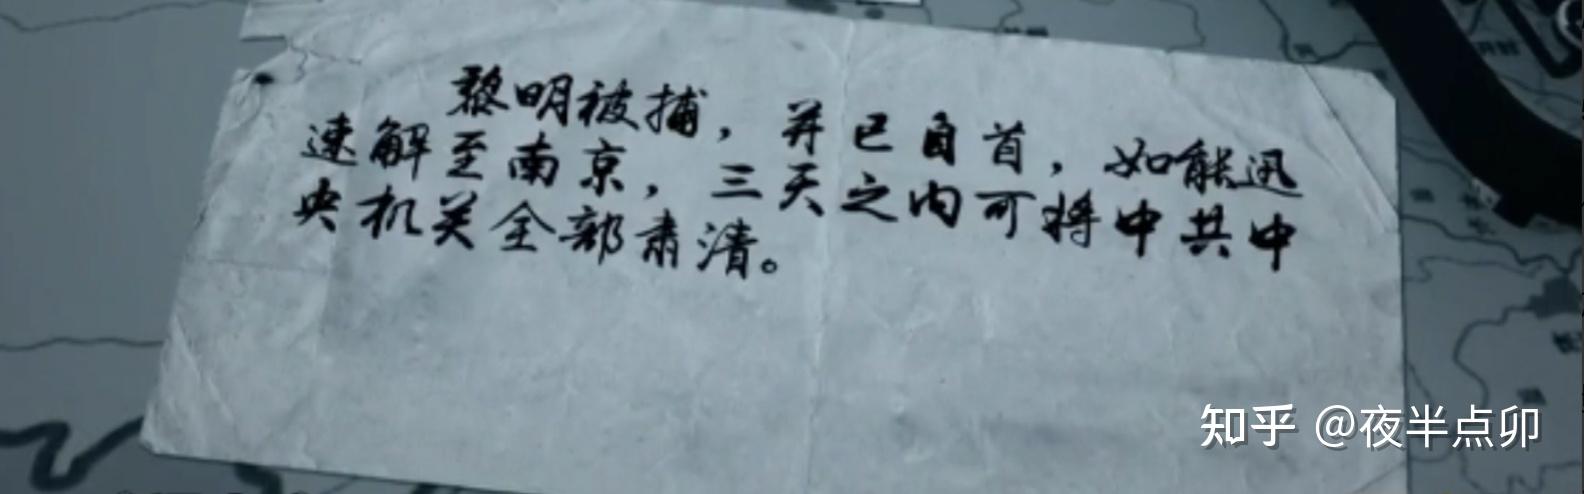 黎明被捕，并已自首，如能迅
速解至南京，三天之内可将中共中
央机关全部肃清。
知乎 @夜半点卯